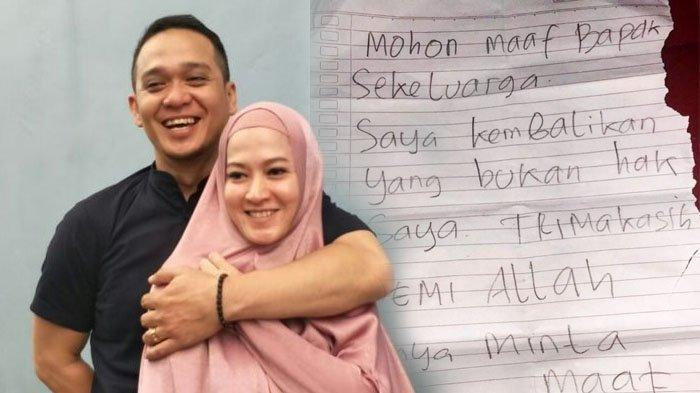 Mohon maaf Bapak
Sekeluarga.
Saya kemBalikan
yang bukan hak
Saya. TRIMakasih
EMI ALLah !
aya Minta
Maaf